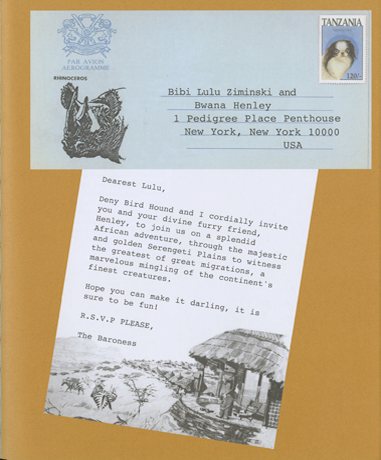 PAR AVION
AEROGRAMME
RHINOCEROS
TANZANIA
120/-
Bibi Lulu Ziminski and
Bwana Henley
1 Pedigree Place Penthouse
New York, New York 10000
USA
Dearest Lulu,
Deny Bird Hound and I cordially invite
you and your divine furry friend,
Henley, to join us on a splendid
African adventure, through the majestic
and golden Serengeti Plains to witness
the greatest of great migrations, a
marvelous mingling of the continent's
finest creatures.
Hope you can make it darling, it is
sure to be fun!
R.S.V.P PLEASE,
The Baroness